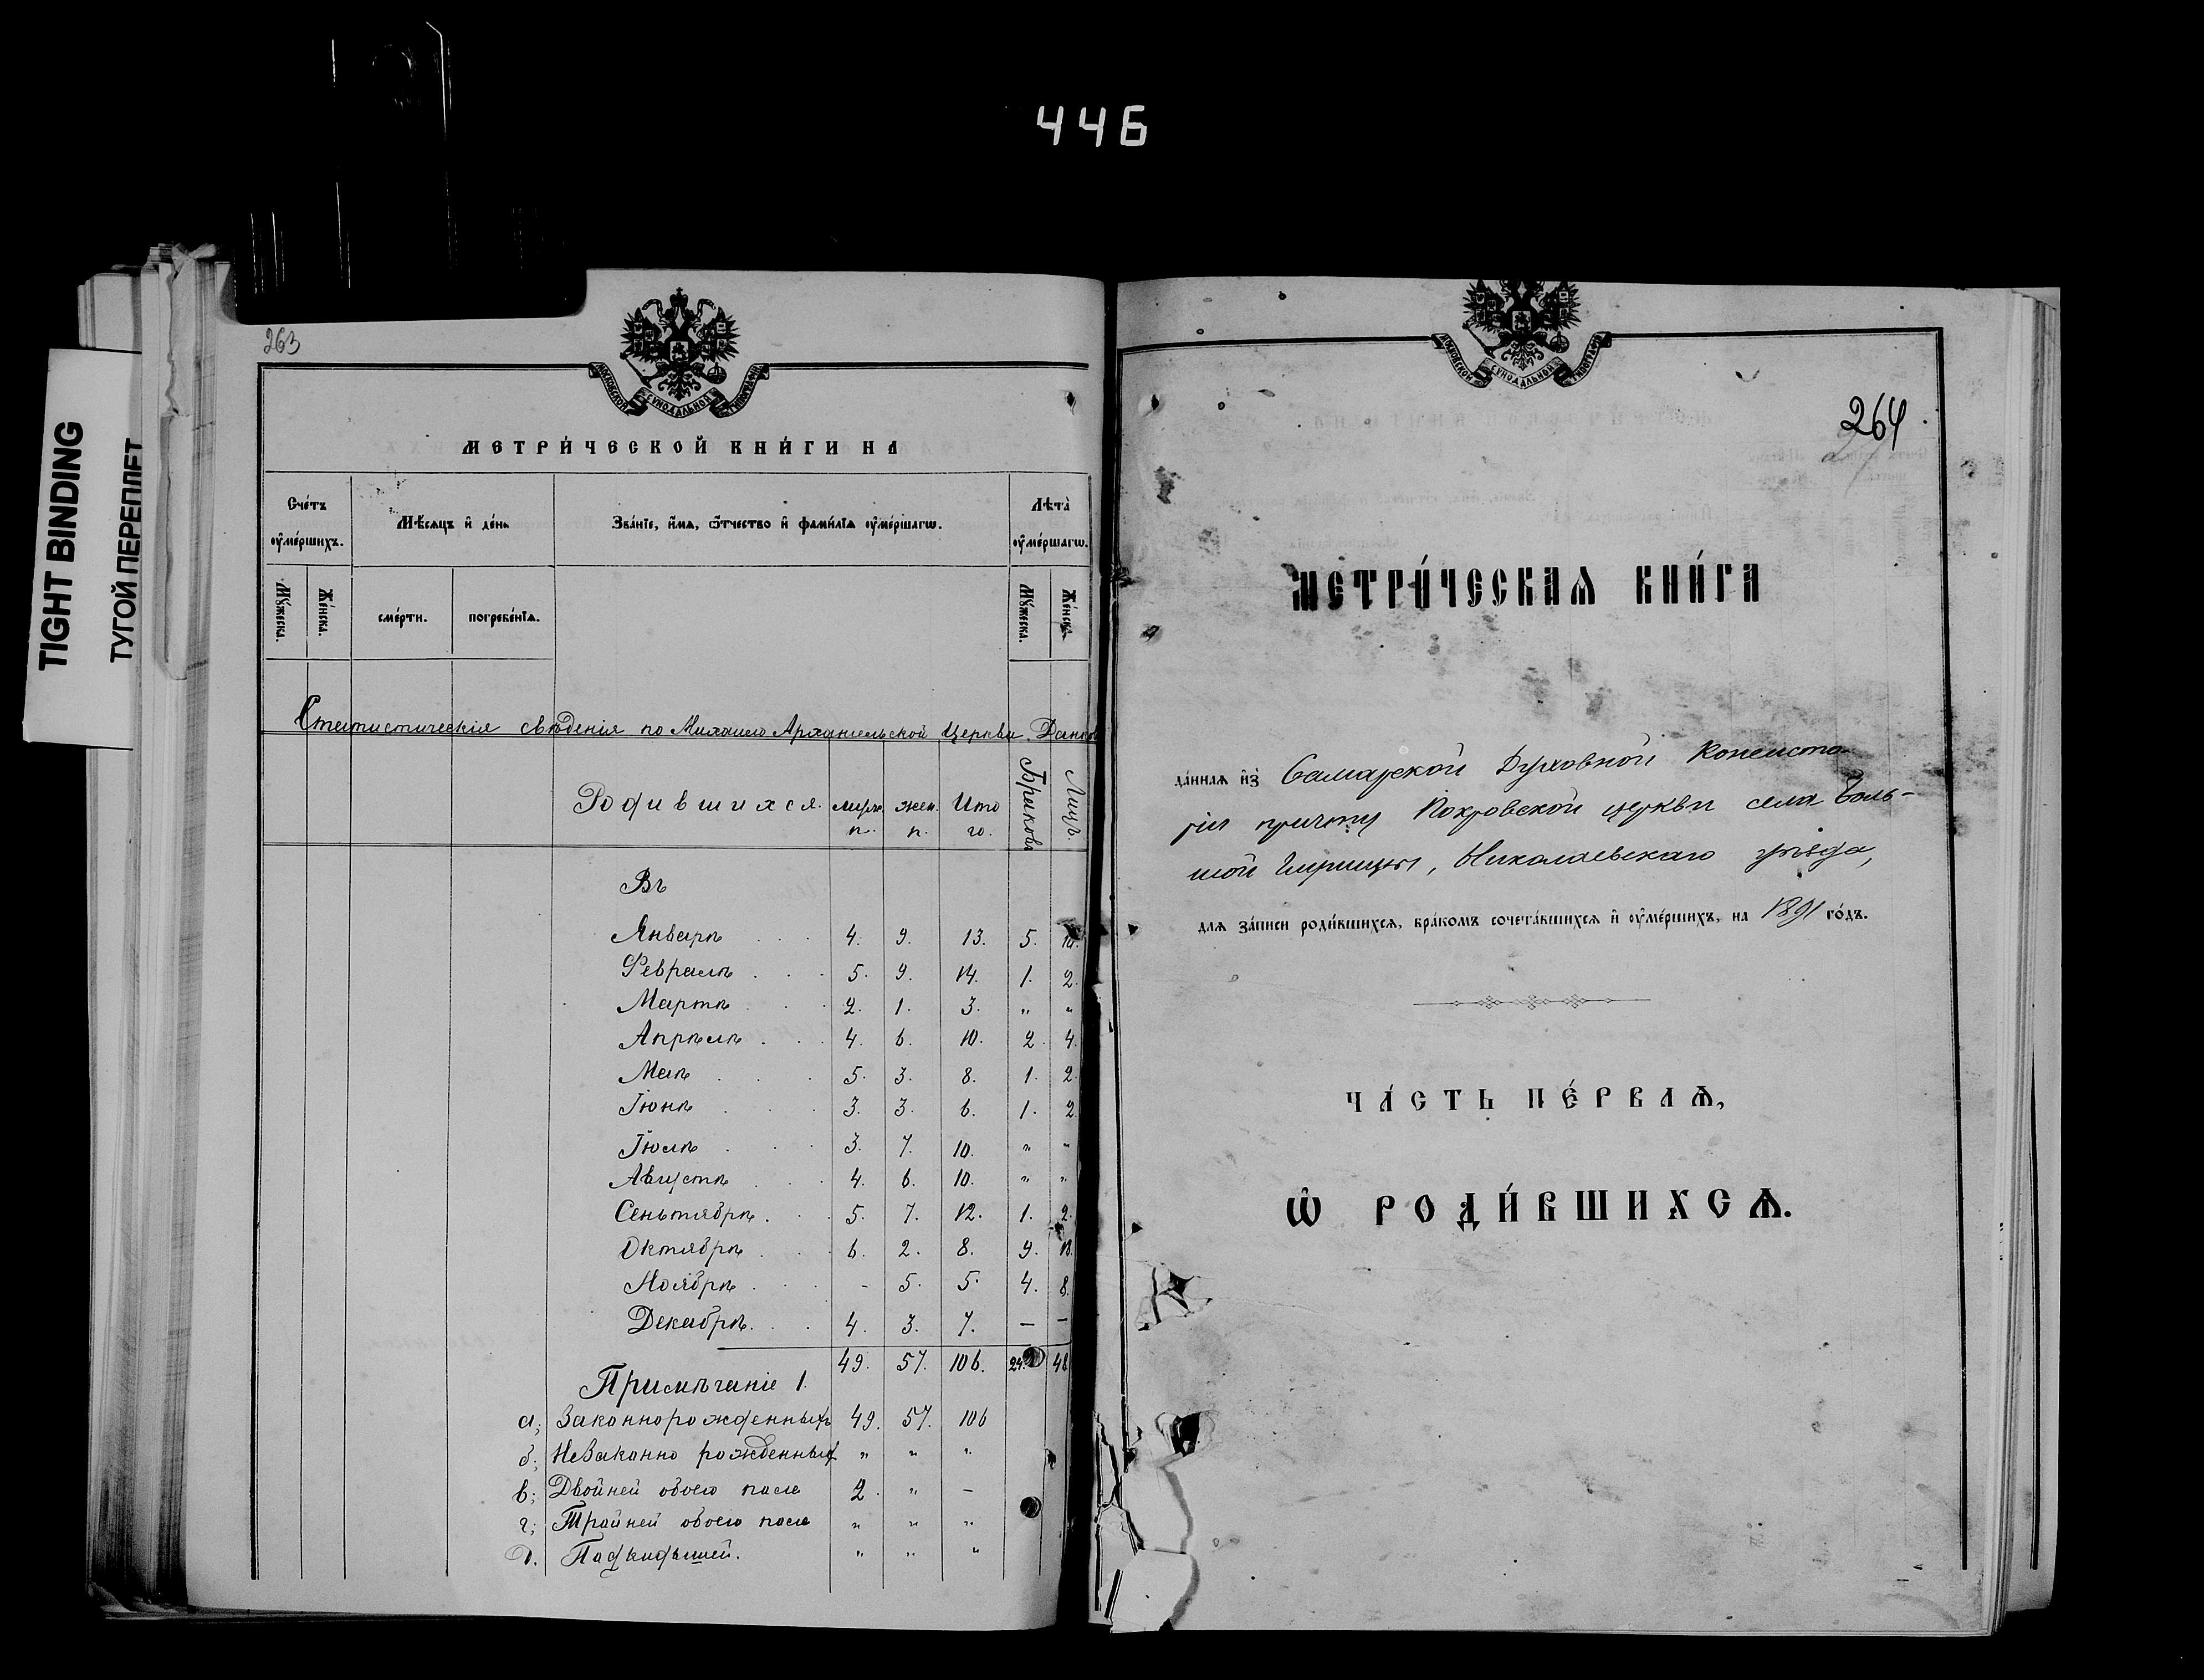 446
TIGHT BINDING
ТУГОЙ ПЕРЕПЛЕТ
263
МОСКОВСКОЙ СѴНОДАЛЬНОЙ ТИПОГРАФІИ
МЕТРИ́ЧЕСКОЙ КНИ́ГИ НА
Сче́тъ ᲂу҆ме́ршихъ.
Мѣ́сяцъ и҆ де́нь
Зва́нїе, и҆́мѧ, ѻ҆́тчество и҆ фами́лїѧ ᲂу҆ме́ршагѡ.
Лѣта̀ ᲂу҆ме́ршагѡ.
Мꙋ́жеска.
Же́нска.
сме́рти.
погребе́нїѧ.
Мꙋ́жеска.
Же́нска.
Статистическія свѣдѣнія по Михаило Архангельской Церкви.
Родившихся. муж. п. жен. п. Итого. Браковъ Лицъ.
Въ
Январѣ . . . 4. 9. 13. 5. 10.
Февралѣ . . . 5. 9. 14. 1. 2.
Мартѣ . . . 2. 1. 3. „ „
Апрѣлѣ . . . 4. 6. 10. 2. 4.
Маѣ . . . 5. 3. 8. 1. 2.
Іюнѣ . . . 3. 3. 6. 1. 2
Іюлѣ . . . 3. 7. 10. „ „
Августѣ . . . 4. 6. 10. „ „
Сентябрѣ . . . 5. 7. 12. 1. 2.
Октябрѣ . . . 6. 2. 8. 9. 18.
Ноябрѣ . . . - 5. 5. 4. 8.
Декабрѣ . . . 4. 3. 7. — —
49. 57. 106. 24. 48
Примѣчаніе 1.
а; Законнорожденныхъ 49. 57. 106
б; Незаконно рожденных „ „ „
в; Двойней обоего пола 2. „ —
г; Тройней обоего пола „ „ „
д. Подкидышей. „ „ „
МОСКОВСКОЙ СѴНОДАЛЬНОЙ ТИПОГРАФІИ
264
МЕТРИ́ЧЕСКАѦ КНИ́ГА
да́ннаѧ и҆з̾ Самарской Духовной Консисто-
ріи причту Покровской церкви села Боль-
шой Глушицы, Николаевскаго уѣзда,
длѧ за́писи роди́вшихсѧ, бра́комъ сочета́вшихсѧ и҆ ᲂу҆ме́ршихъ, на 1891 го́дъ.
ЧА́СТЬ ПЕ́РВАѦ,
Ѡ҆ РОДИ́ВШИХСѦ.